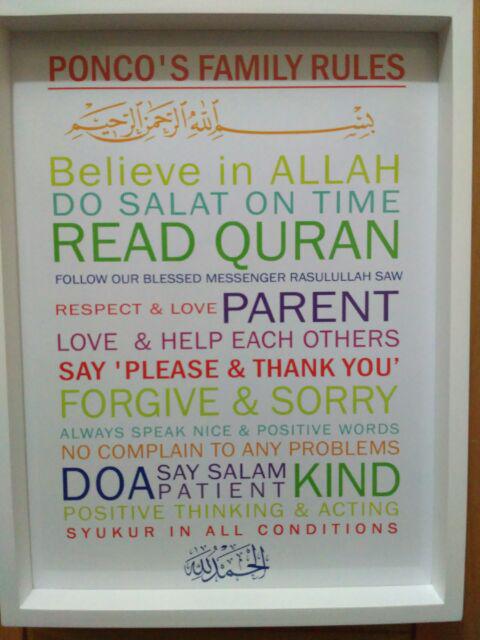 PONCO'S FAMILY RULES
بِسْمِ اللهِ الرَّحْمٰنِ الرَّحِيْمِ
Believe in ALLAH
DO SALAT ON TIME
READ QURAN
FOLLOW OUR BLESSED MESSENGER RASULULLAH SAW
RESPECT & LOVE PARENT
LOVE & HELP EACH OTHERS
SAY 'PLEASE & THANK YOU'
FORGIVE & SORRY
ALWAYS SPEAK NICE & POSITIVE WORDS
NO COMPLAIN TO ANY PROBLEMS
DOA SAY SALAM PATIENT KIND
POSITIVE THINKING & ACTING
SYUKUR IN ALL CONDITIONS
الحمد لله